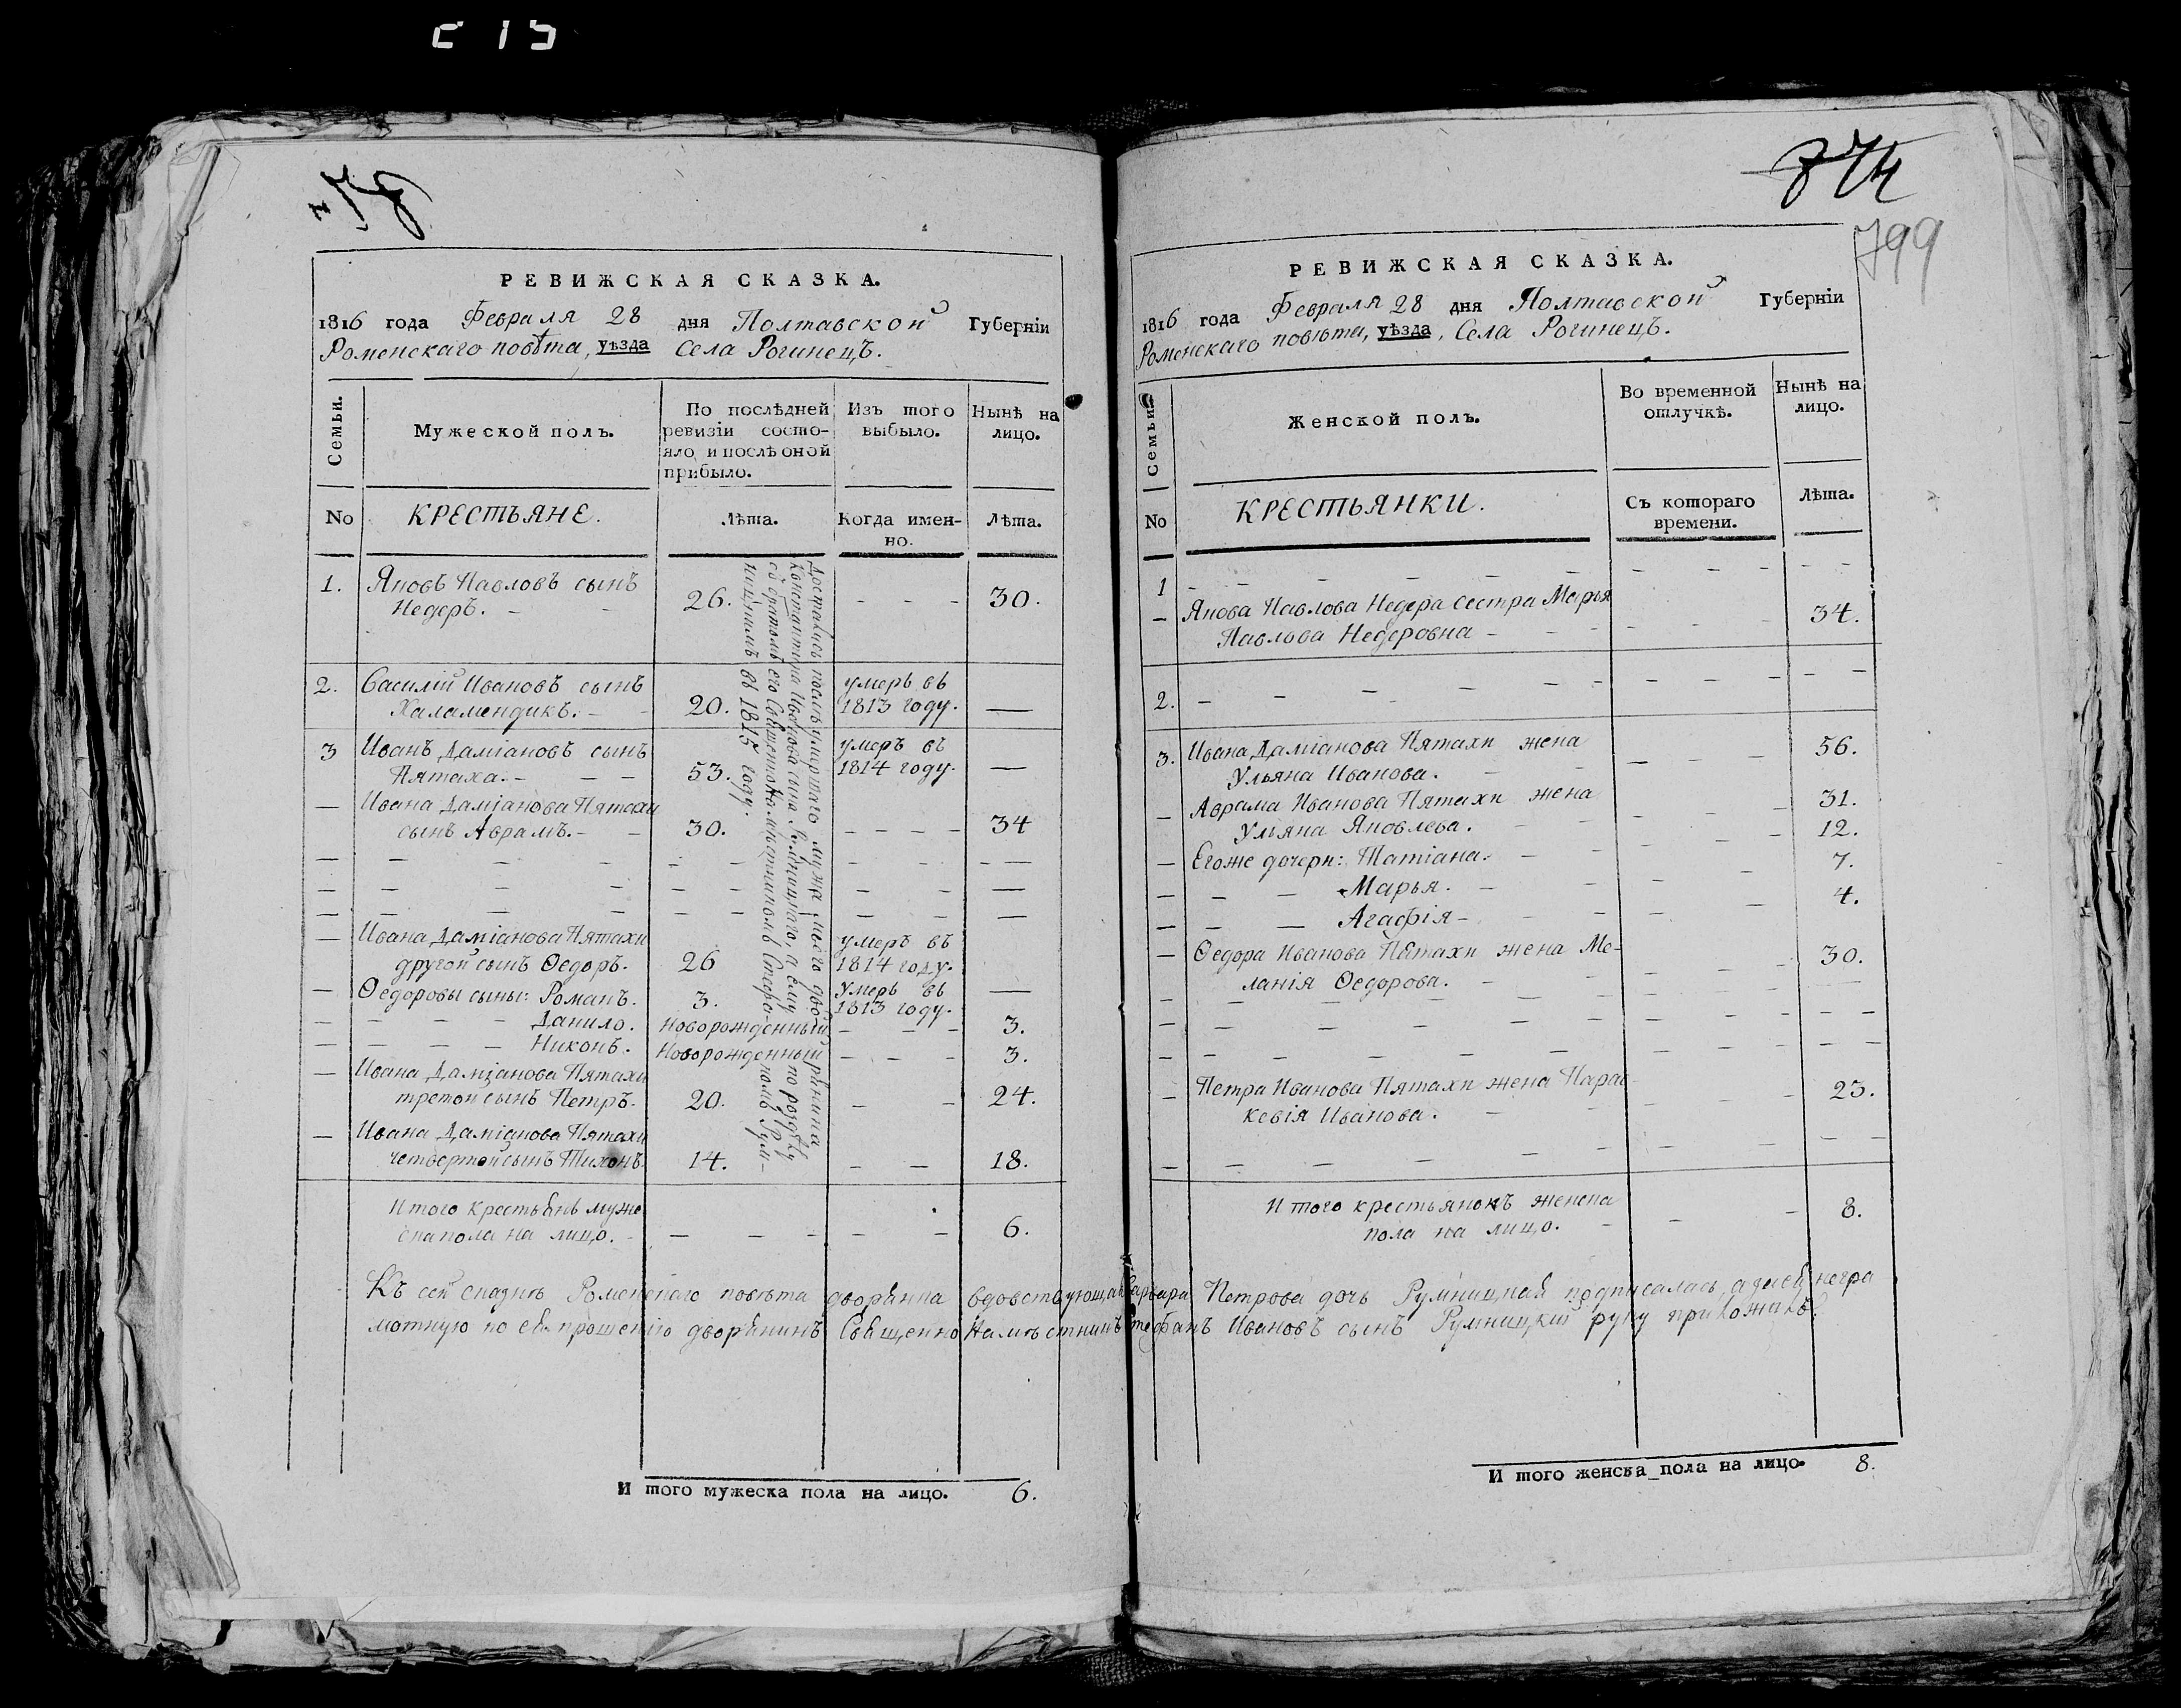 215
774
799
РЕВИЖСКАЯ СКАЗКА.
1816 года Февраля 28 дня Полтавской Губерніи
Роменскаго повѣта, уѣзда Села Рогинецъ.
Семьи.
Мужеской полъ.
По послѣдней ревизіи состо-
яло, и послѣ оной
прибыло.
Изъ того
выбыло.
Нынѣ на
лицо.
No
КРЕСТЬЯНЕ.
Лѣта.
Когда имен-
но.
Лѣта.
1. Яковъ Павловъ сынъ
Недеръ. - - 26. - - - 30.
2. Василій Ивановъ сынъ
Халамендикъ. - - 20. умеръ въ
1813 году. —
3 Иванъ Даміановъ сынъ
Пятаха. - — — 53. умеръ въ
1814 году. —
— Ивана Даміанова Пятахи
сынъ Аврамъ. - — 30. - - - - 34
— Ивана Даміанова Пятахи
другой сынъ Ѳедоръ. 26 умеръ въ
1814 году. —
— Ѳедоровы сыны: Романъ. 3. умеръ въ
1813 году.
— — — — Данило. новорожденный — - - 3.
— — — — Никонъ. Новорожденный — - - 3.
— Ивана Даміанова Пятахи
третой сынъ Петръ. 20. — - 24.
— Ивана Даміанова Пятахи
четвертой сынъ Тихонъ. 14. — — 18.
Достались послѣ умершаго мужа моего дворянина
Константина Иванова сына Румницкаго, а ему по роздѣлу
съ братомъ его Священнонамѣстникомъ Стефаномъ Рум-
ницкимъ въ 1815 году.
И того крестьянъ муже
ска пола на лицо. - — — - — — 6.
И того мужеска пола на лицо. 6.
РЕВИЖСКАЯ СКАЗКА.
1816 года Февраля 28 дня Полтавской Губерніи
Роменскаго повѣта, уѣзда, Села Рогинецъ.
Семьи.
Женской полъ.
Во временной
отлучкѣ.
Нынѣ на
лицо.
No
КРЕСТЬЯНКИ.
Съ котораго
времени.
Лѣта.
1
— Якова Павлова Недера сестра Марья
Павлова Недеровна - - - - - - 34.
2.
3. Ивана Даміанова Пятахи жена
Ульяна Иванова. - - - - - 56.
— Аврама Иванова Пятахи жена
Ульяна Яковлева. - - - 31.
— Егоже дочери: Татіана. - - 12.
— — — Марья. - - - - 7.
— — — Агафія - - - - 4.
— Ѳедора Иванова Пятахи жена Ме-
ланія Ѳедорова. - - 30.
— Петра Иванова Пятахи жена Парас
кевія Иванова. - - - - - 23.
И того крестьянокъ женска
пола на лицо. - - - 8.
Къ сей сказкѣ Роменскаго повѣта дворянка вдовствующая Варвара Петрова дочь Румницкая подписалась, а за нея негра
мотную по ея прошенію дворянинъ Священно Намѣстникъ Стефанъ Ивановъ сынъ Румницкій руку приложилъ.
И того женска пола на лицо. 8.